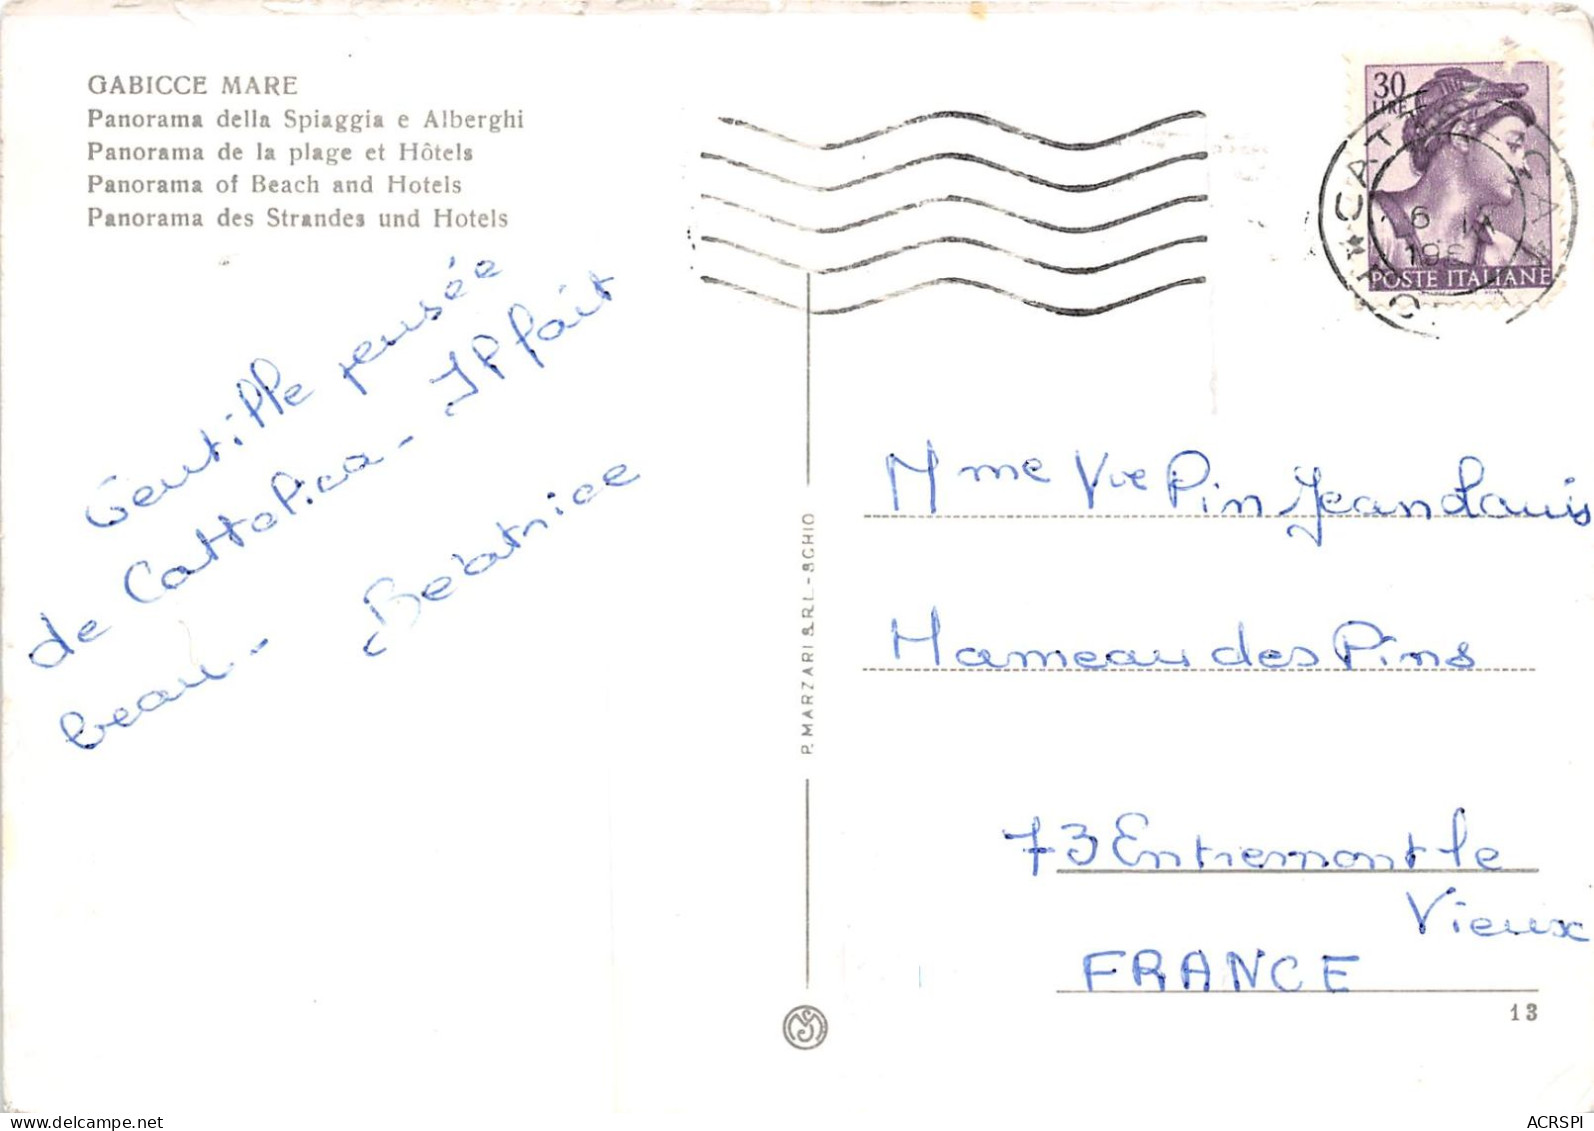 GABICCE MARE
Panorama della Spiaggia e Alberghi
Panorama de la plage et Hôtels
Panorama of Beach and Hotels
Panorama des Strandes und Hotels
30
LIRE
POSTE ITALIANE
Gentille pensée
de Cattolica - Il fait
beau - Béatrice
P. MARZARI S.R.L. - SCHIO
Mme Vve Pin Jean Louis
Hameau des Pins
73 Entremont le
Vieux
FRANCE
13
www.delcampe.net
ACRSPI